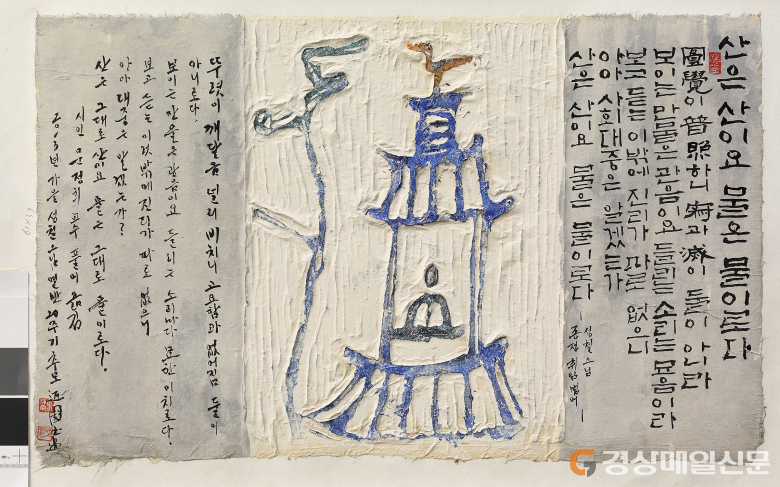 산은 산이요 물은 물이로다
圓覺이 普照하니 寂과 滅이 둘이 아니라
보이는 만물은 관음이요 들리는 소리는 묘음이라
보고 듣는 이밖에 진리가 따로 없으니
아아 시회대중은 알겠는가
산은 산이요 물은 물이로다
성철스님
종정 취임 법어
뚜렷이 깨달음 널리 비치니 고요함과 없어짐 둘이
아니로다.
보이는 만물은 관음이요 들리는 소리마다 묘한 이치로다.
보고 듣는 이것 밖에 진리가 따로 없으니
아아 대중은 알겠는가?
산은 그대로 산이요 물은 그대로 물이로다.
시인 풀어 옮김
가을 성철스님 열반 20주기 추모
경상매일신문